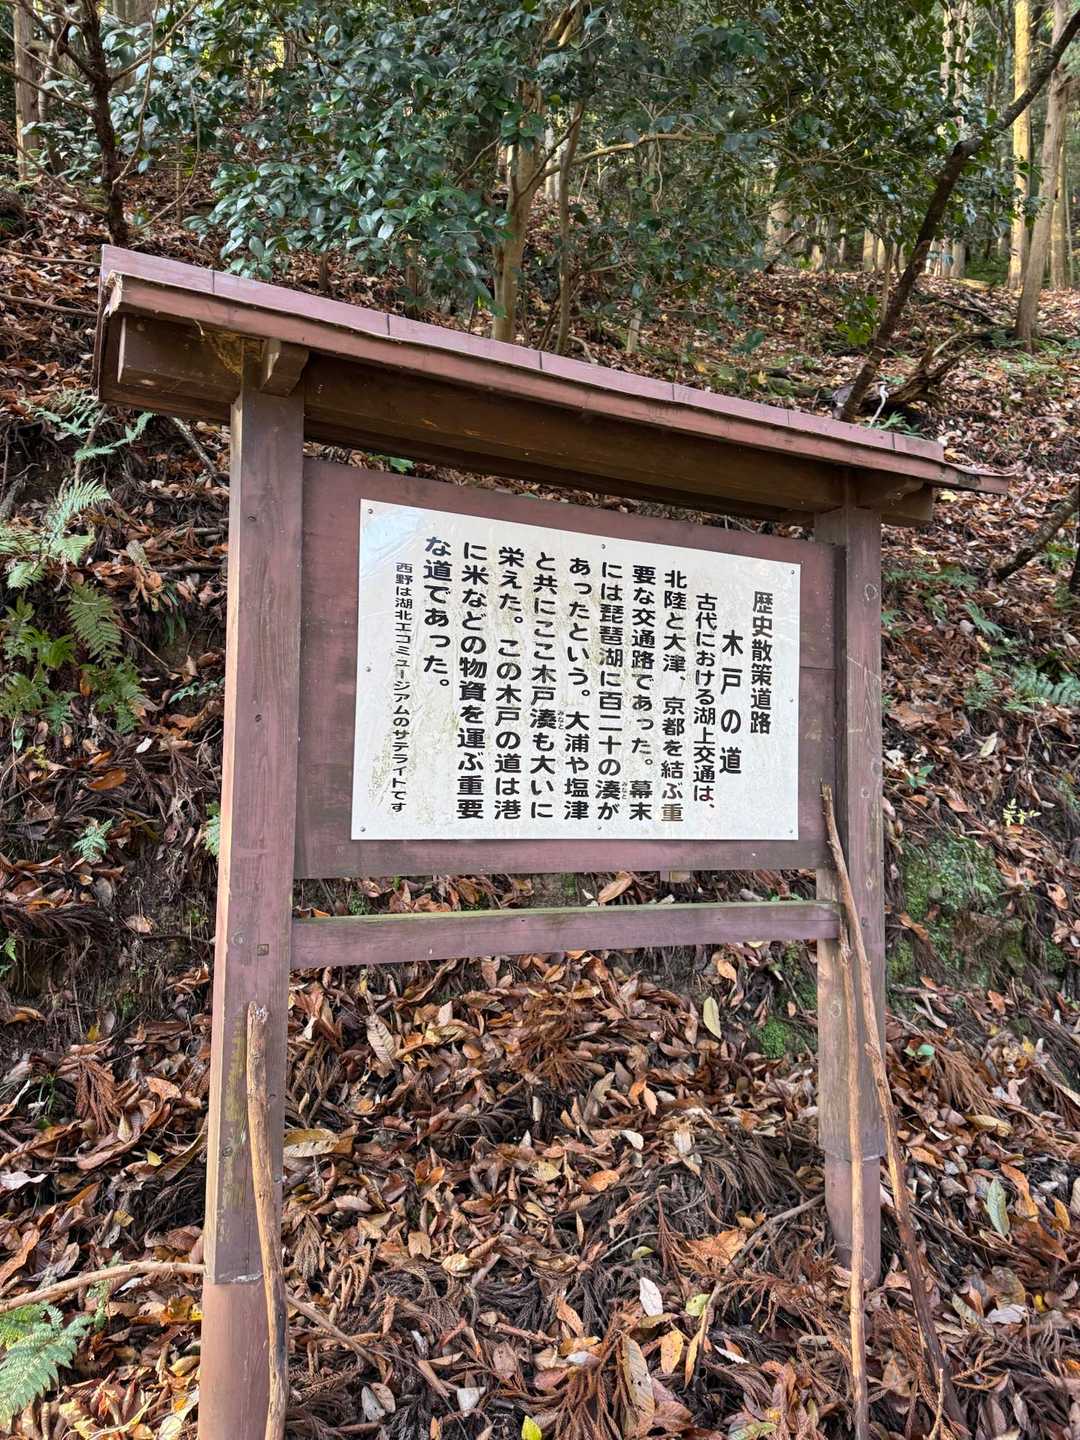 歴史散策道路
木戸の道
古代における湖上交通は、
北陸と大津、京都を結ぶ重
要な交通路であった。幕末
には琵琶湖に百二十の湊が
あったという。大浦や塩津
と共にここ木戸湊も大いに
栄えた。この木戸の道は港
に米などの物資を運ぶ重要
な道であった。
西野は湖北エコミュージアムのサテライトです